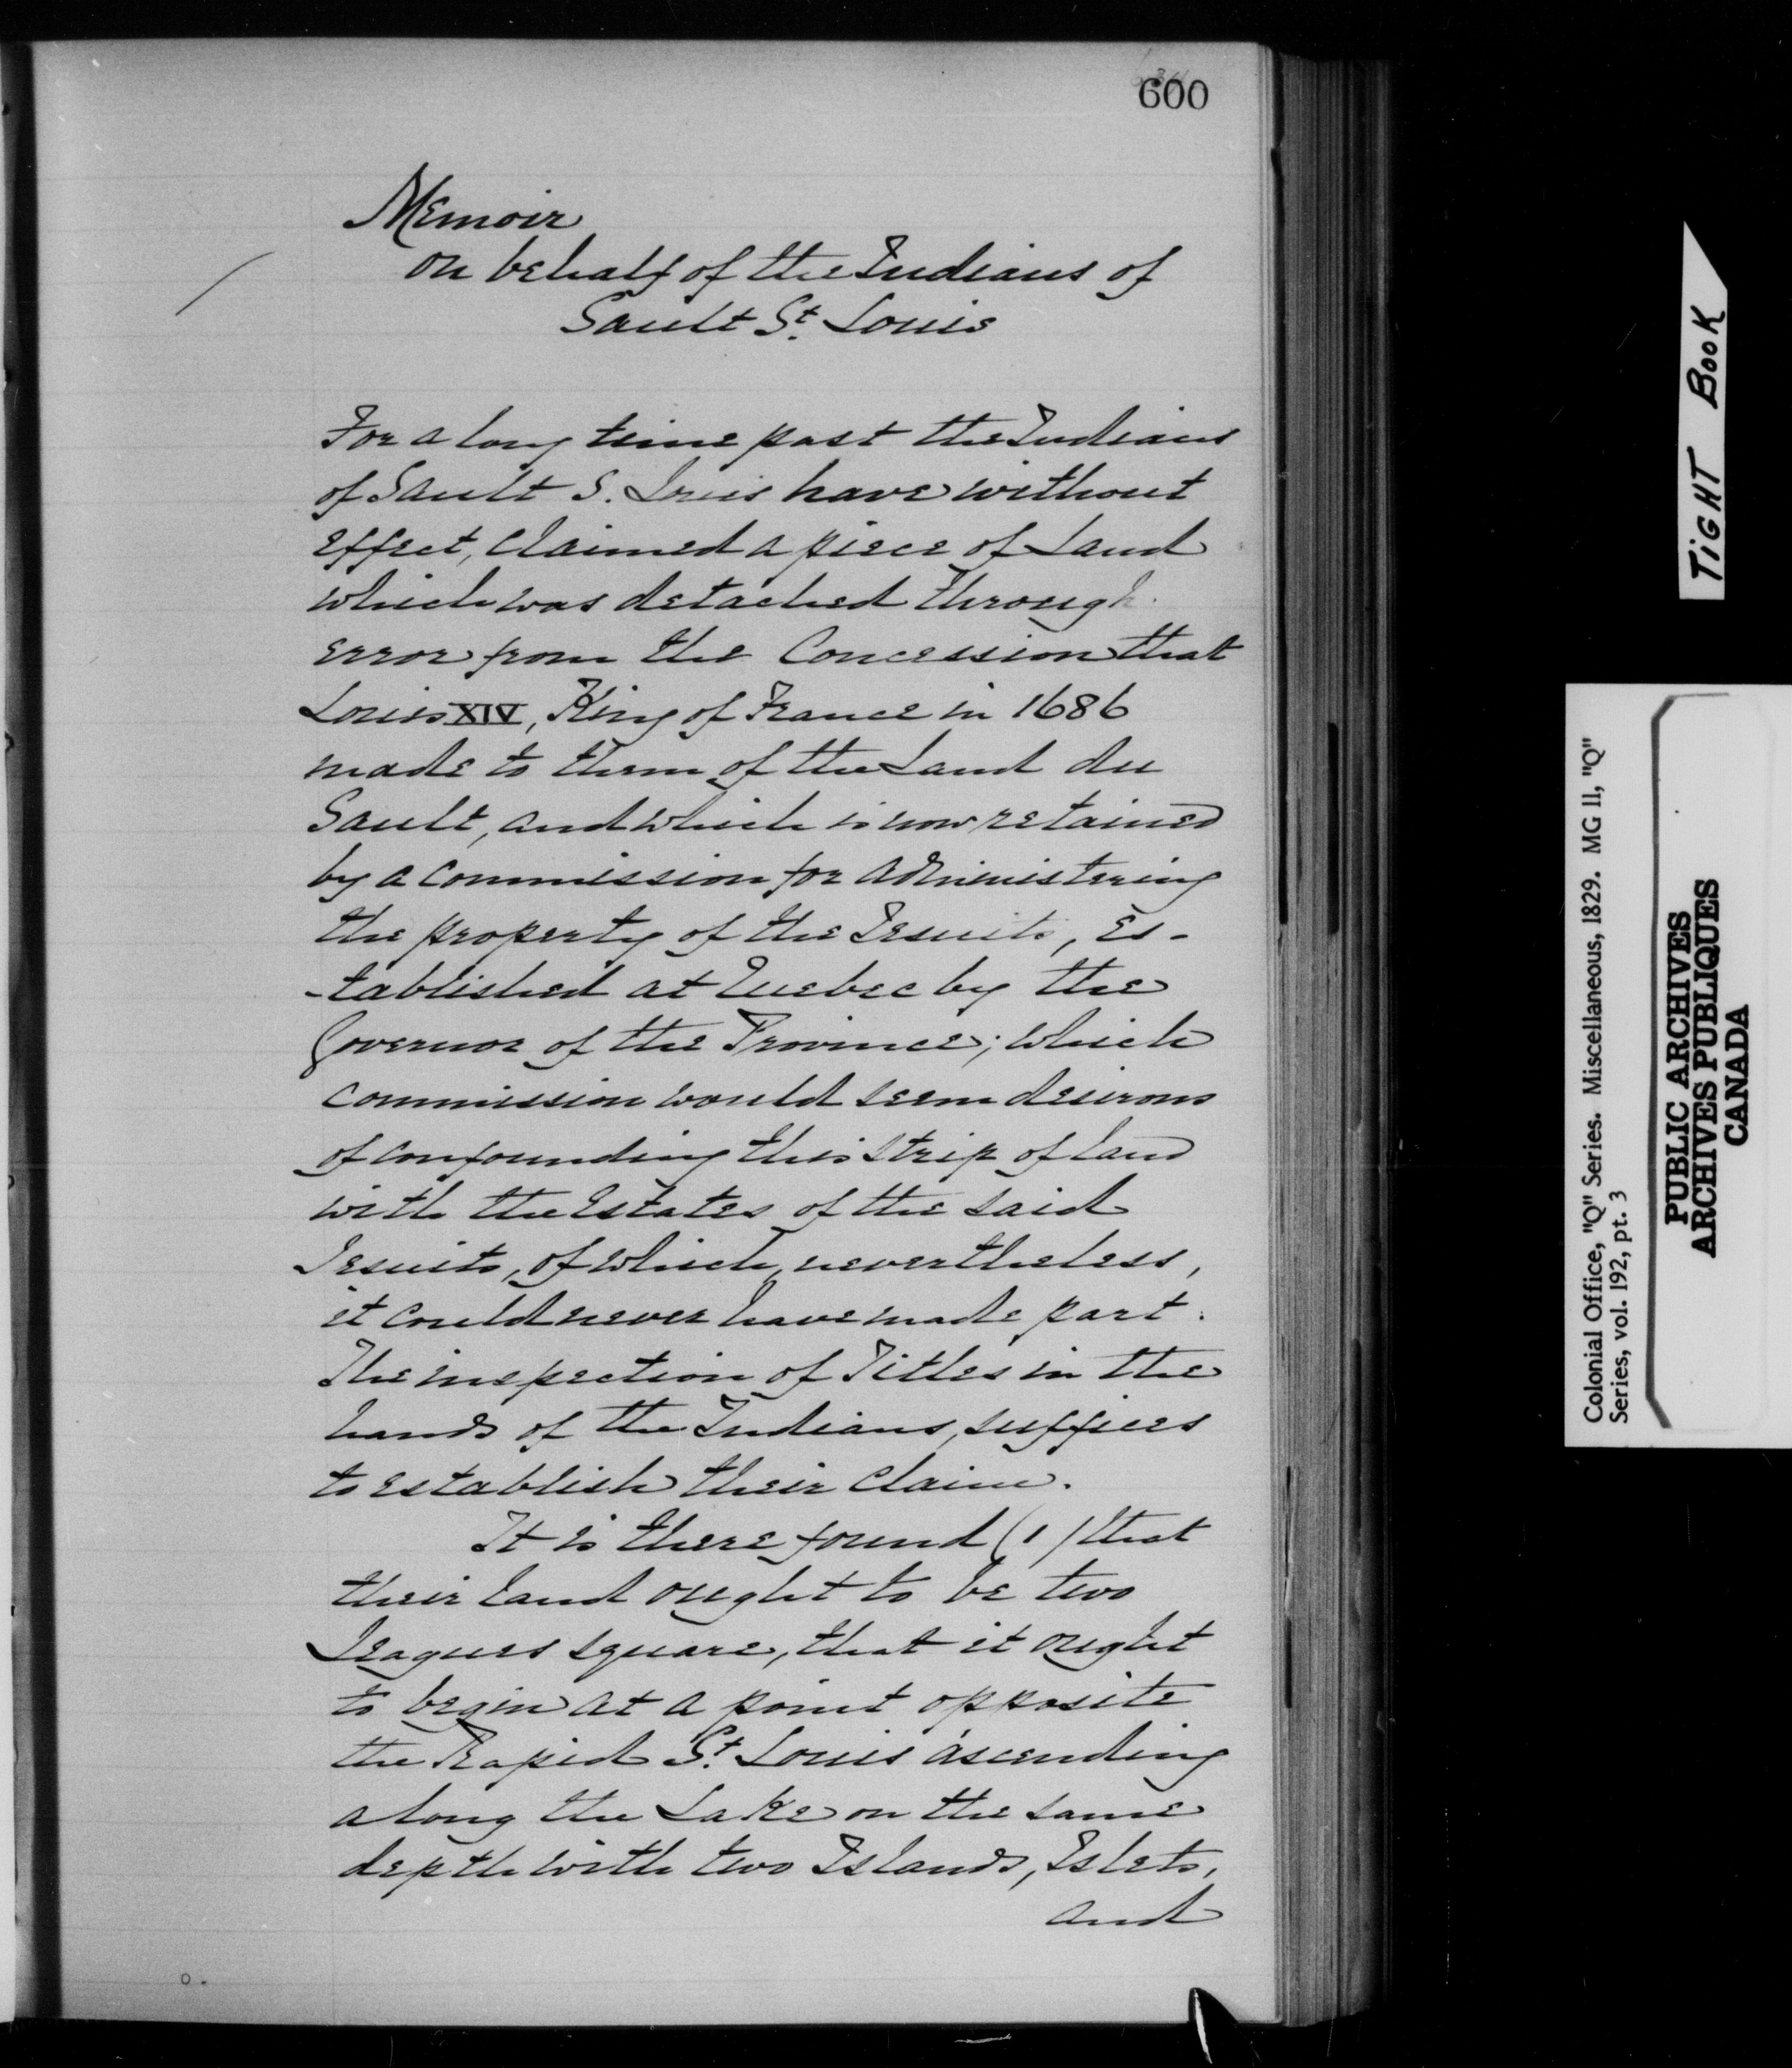 600
Memoir
on behalf of the Indians of
Sault St. Louis
For a long time past the Indians
of Sault S. Louis have without
effect, claimed a piece of Land
which was detached through
error from the Concession that
Louis XIV, King of France in 1686
made to them of the Land du
Sault, and which is now retained
by a commission for administering
the property of the Jesuits, es-
-tablished at Quebec by the
Governor of the Province; which
commission would seem desirous
of confounding this strip of land
with the Estates of the said
Jesuits, of which, nevertheless,
it could never have made part.
The inspection of Titles in the
hands of the Indians, suffices
to establish their claim.
It is there found (1) that
their land ought to be two
leagues square, that it ought
to begin at a point opposite
the Rapid St. Louis ascending
along the Lake on the same
depth with two Islands, Islets,
and
TIGHT BOOK
Colonial Office, "Q" Series. Miscellaneous, 1829. MG 11, "Q"
Series, vol. 192, pt. 3
PUBLIC ARCHIVES
ARCHIVES PUBLIQUES
CANADA